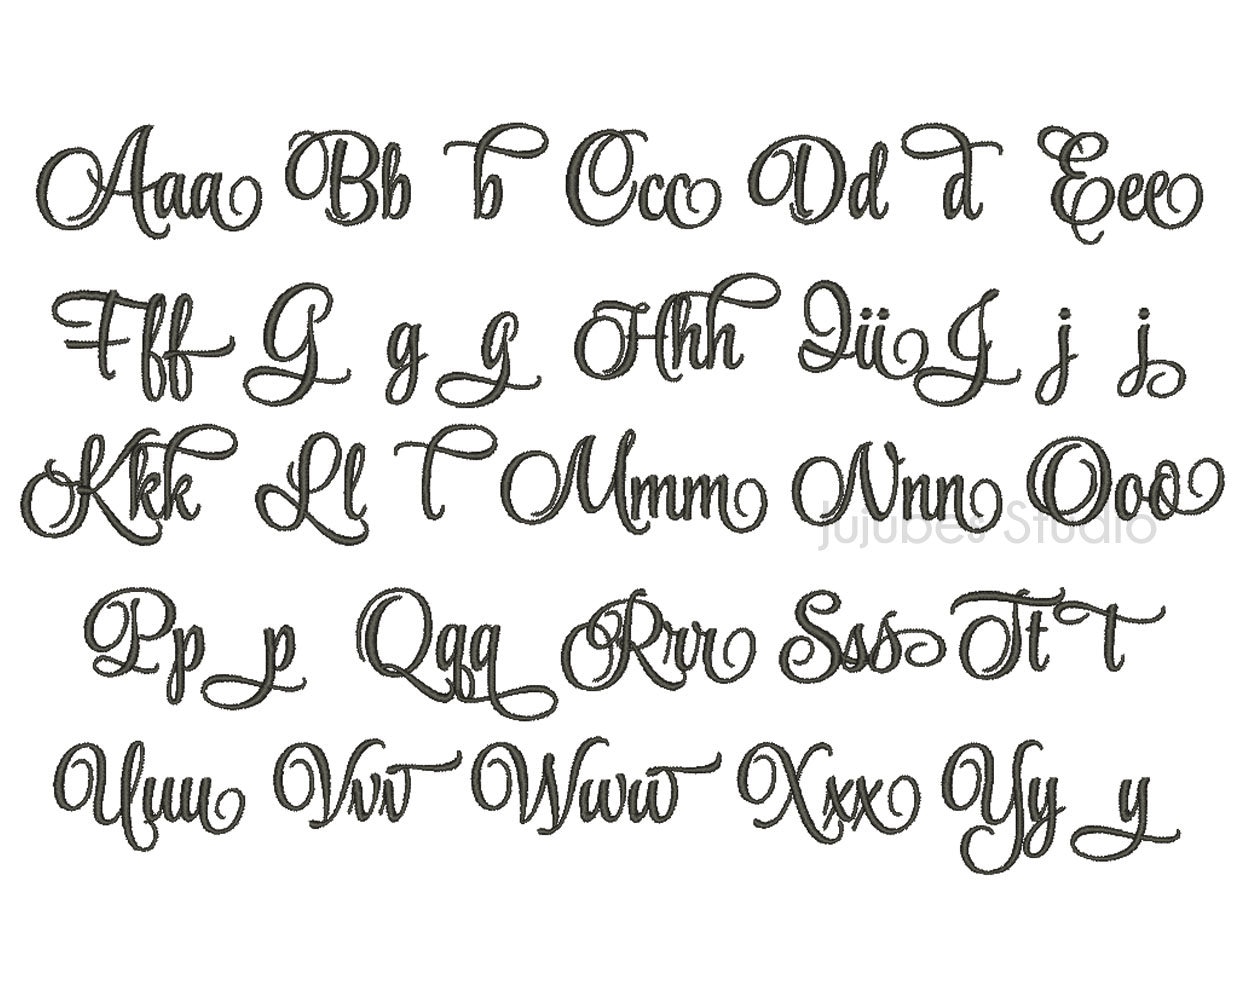 Aaa Bb b Ccc Dd d Eee
Fff G g g Hhh Iii J j j
Kkk Ll l Mmm Nnn Ooo
Jujubes Studio
Pp p Qqq Rrr Sss Tt t
Uuu Vvv Www Xxx Yy y